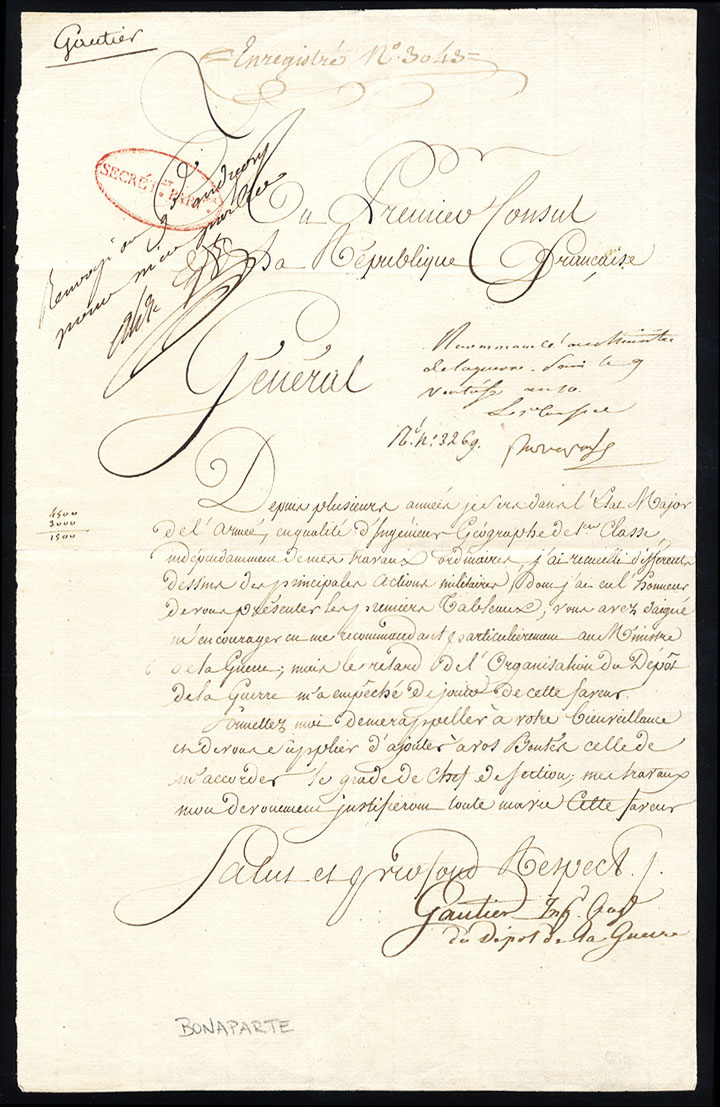 Gautier
Enregistré N.º 3043
SECRÉT.
Renvoyé au Gal Andreossy
pour
Au Premier Consul
de la République Française
Général
Recommandé au Ministre
de la guerre. Paris le 9
ventôse an 10.
Le 1er Consul
Nº. 3269.
Bonaparte
4500
3000
1500
Depuis plusieurs années je sers dans l'État Major
de l'Armée, en qualité d'Ingénieur Géographe de 1ere Classe,
indépendamment de mes travaux ordinaires, j'ai recueilli différents
dessins des principales Actions militaires, Dont j'ai eu l'honneur
de vous présenter les premiers Tableaux, vous avez daigné
m'encourager en me recommandant particulièrement au Ministre
de la Guerre; mais le retard de l'Organisation du Dépôt
de la Guerre m'a empêché de jouir de cette faveur.
Permettez moi de me rappeller à votre bienveillance
et de vous supplier d'ajouter à vos Bontés celle de
m'accorder le grade de Chef de section; mes travaux
mon dévouement justifieront toute ma vie Cette faveur
Salut et profond Respect.
Gautier Ingr Geog
du Dépôt de la Guerre
BONAPARTE